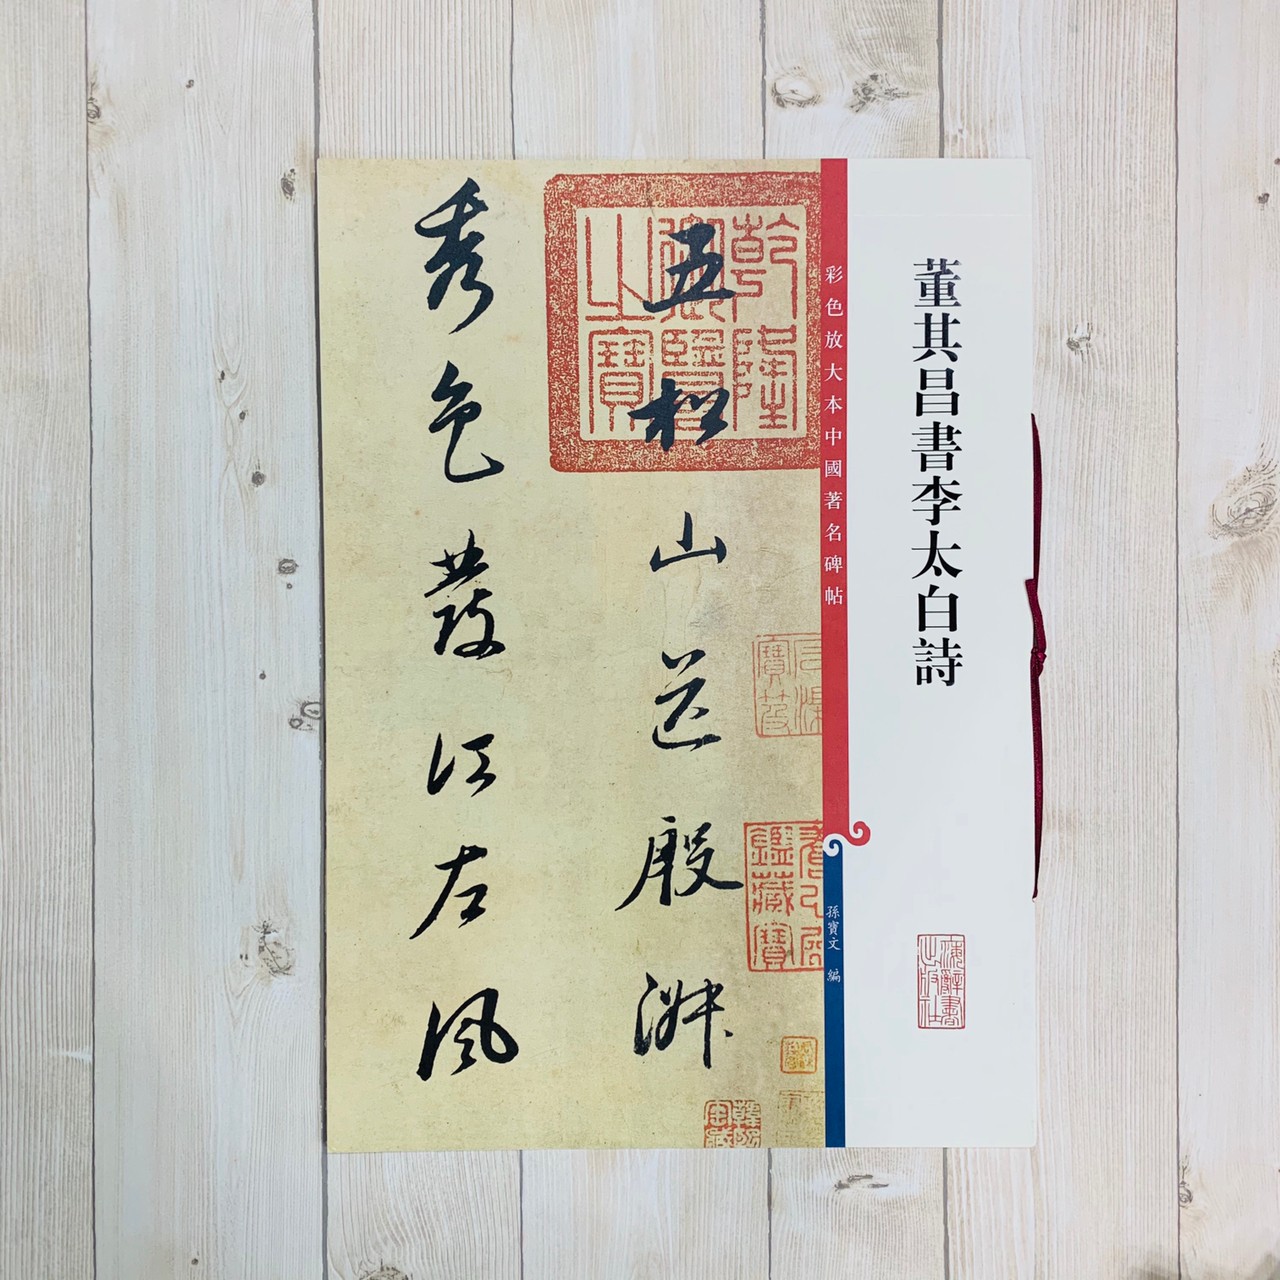 董其昌書李太白詩
海辭書
出版社
彩色放大本中國著名碑帖
孫寶文 編
乾隆
御覽
之寶
五松山送殷淑
秀色發江左風
鑑藏寶